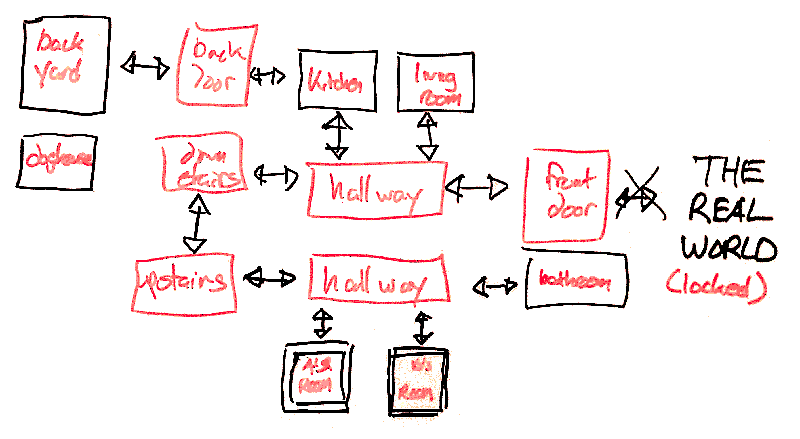 back
yard
back
door
kitchen
living
room
doghouse
down
stairs
hallway
front
door
THE
REAL
WORLD
(locked)
upstairs
hallway
bathroom
ROOM
ROOM